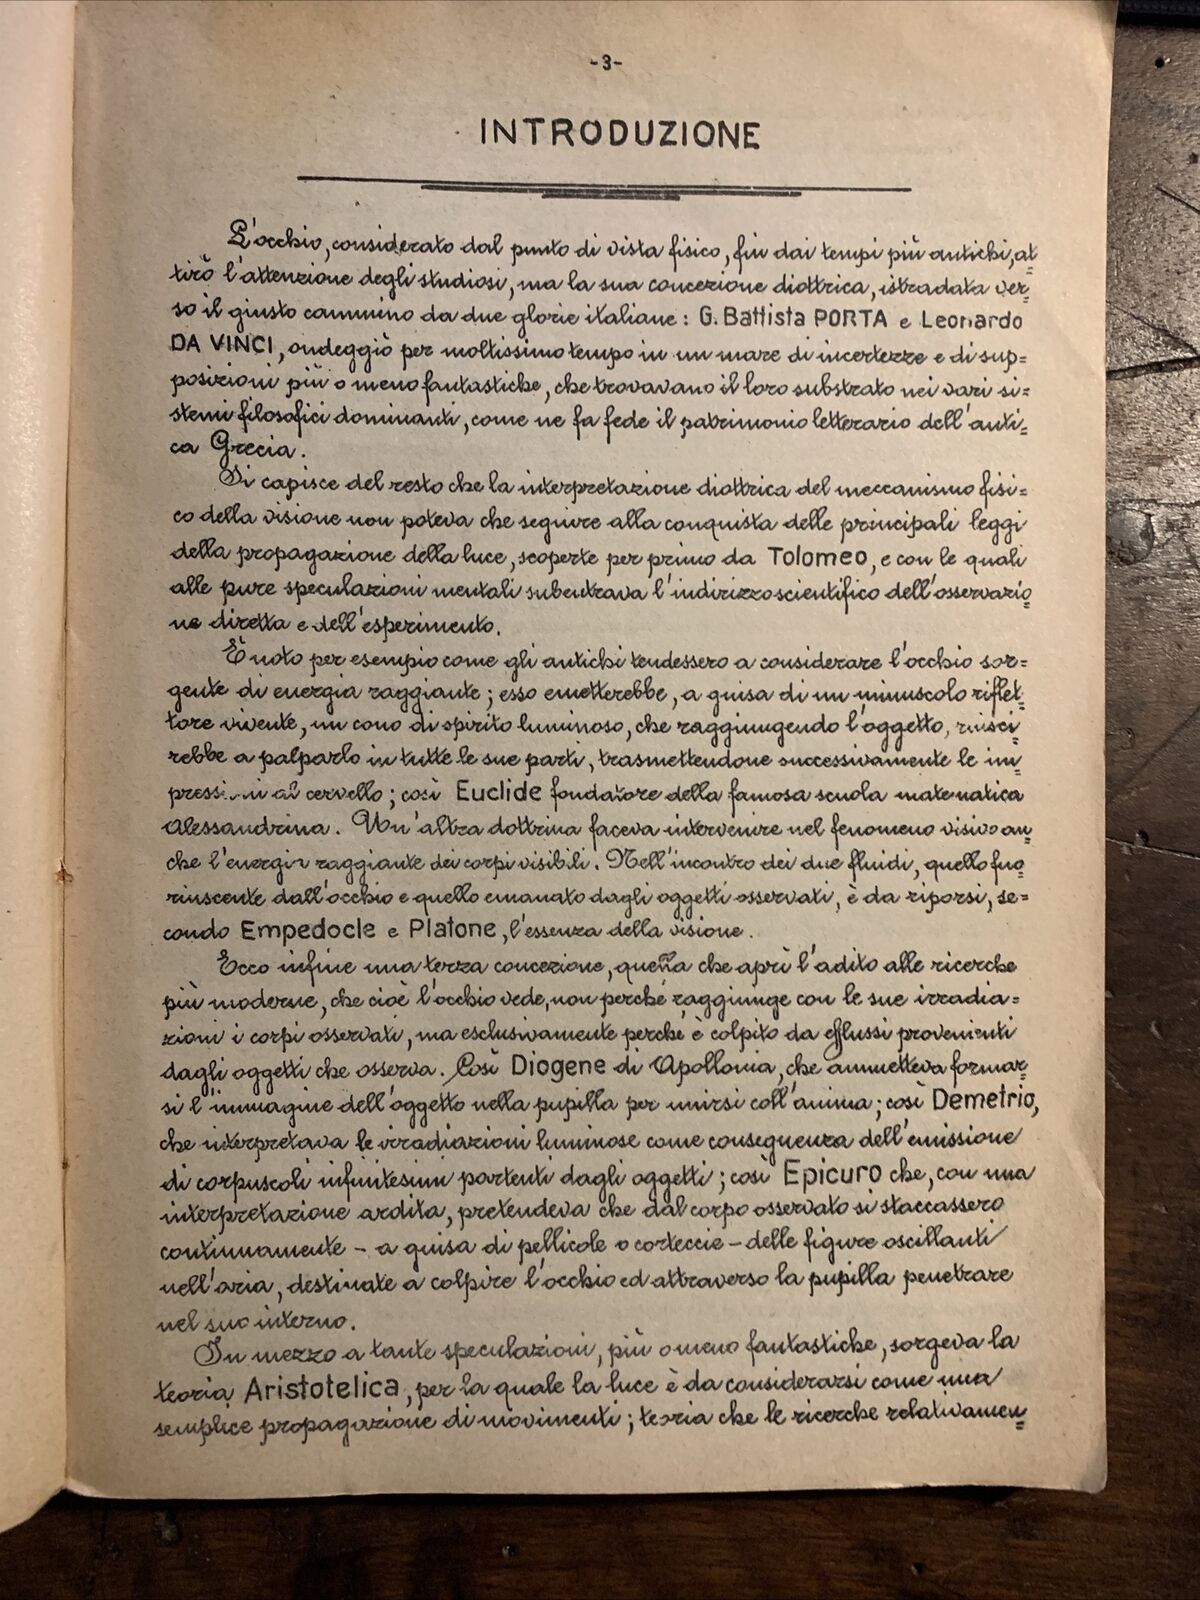 -3-
INTRODUZIONE
L'occhio, considerato dal punto di vista fisico, fin dai tempi più antichi, at=
tirò l'attenzione degli studiosi, ma la sua concezione diottrica, istradata ver=
so il giusto cammino da due glorie italiane: G. Battista PORTA e Leonardo
DA VINCI, ondeggiò per moltissimo tempo in un mare di incertezze e di sup=
posizioni più o meno fantastiche, che trovavano il loro substrato nei vari si=
stemi filosofici dominanti, come ne fa fede il patrimonio letterario dell'anti=
ca Grecia.
Si capisce del resto che la interpretazione diottrica del meccanismo fisi=
co della visione non poteva che seguire alla conquista delle principali leggi
della propagazione della luce, scoperte per primo da Tolomeo, e con le quali
alle pure speculazioni mentali subentrava l'indirizzo scientifico dell'osservazio=
ne diretta e dell'esperimento.
È noto per esempio come gli antichi tendessero a considerare l'occhio sor=
gente di energia raggiante; esso emetterebbe, a guisa di un minuscolo riflet=
tore vivente, un cono di spirito luminoso, che raggiungendo l'oggetto, riusci=
rebbe a palparlo in tutte le sue parti, trasmettendone successivamente le im=
pressioni al cervello; così Euclide fondatore della famosa scuola matematica
Alessandrina. Un'altra dottrina faceva intervenire nel fenomeno visivo an=
che l'energia raggiante dei corpi visibili. Nell'incontro dei due fluidi, quello fuo=
riuscente dall'occhio e quello emanato dagli oggetti osservati, è da riporsi, se=
condo Empedocle e Platone, l'essenza della visione.
Ecco infine una terza concezione, quella che aprì l'adito alle ricerche
più moderne, che cioè l'occhio vede, non perché raggiunge con le sue irradia=
zioni i corpi osservati, ma esclusivamente perché è colpito da efflussi provenienti
dagli oggetti che osserva. Così Diogene di Apollonia, che ammetteva formar=
si l'immagine dell'oggetto nella pupilla per unirsi coll'anima; così Demetrio,
che interpretava le irradiazioni luminose come conseguenza dell'emissione
di corpuscoli infinitesimi partenti dagli oggetti; così Epicuro che, con una
interpretazione ardita, pretendeva che dal corpo osservato si staccassero
continuamente - a guisa di pellicole o corteccie - delle figure oscillanti
nell'aria, destinate a colpire l'occhio ed attraverso la pupilla penetrare
nel suo interno.
In mezzo a tante speculazioni, più o meno fantastiche, sorgeva la
teoria Aristotelica, per la quale la luce è da considerarsi come una
semplice propagazione di movimenti; teoria che le ricerche relativamen=